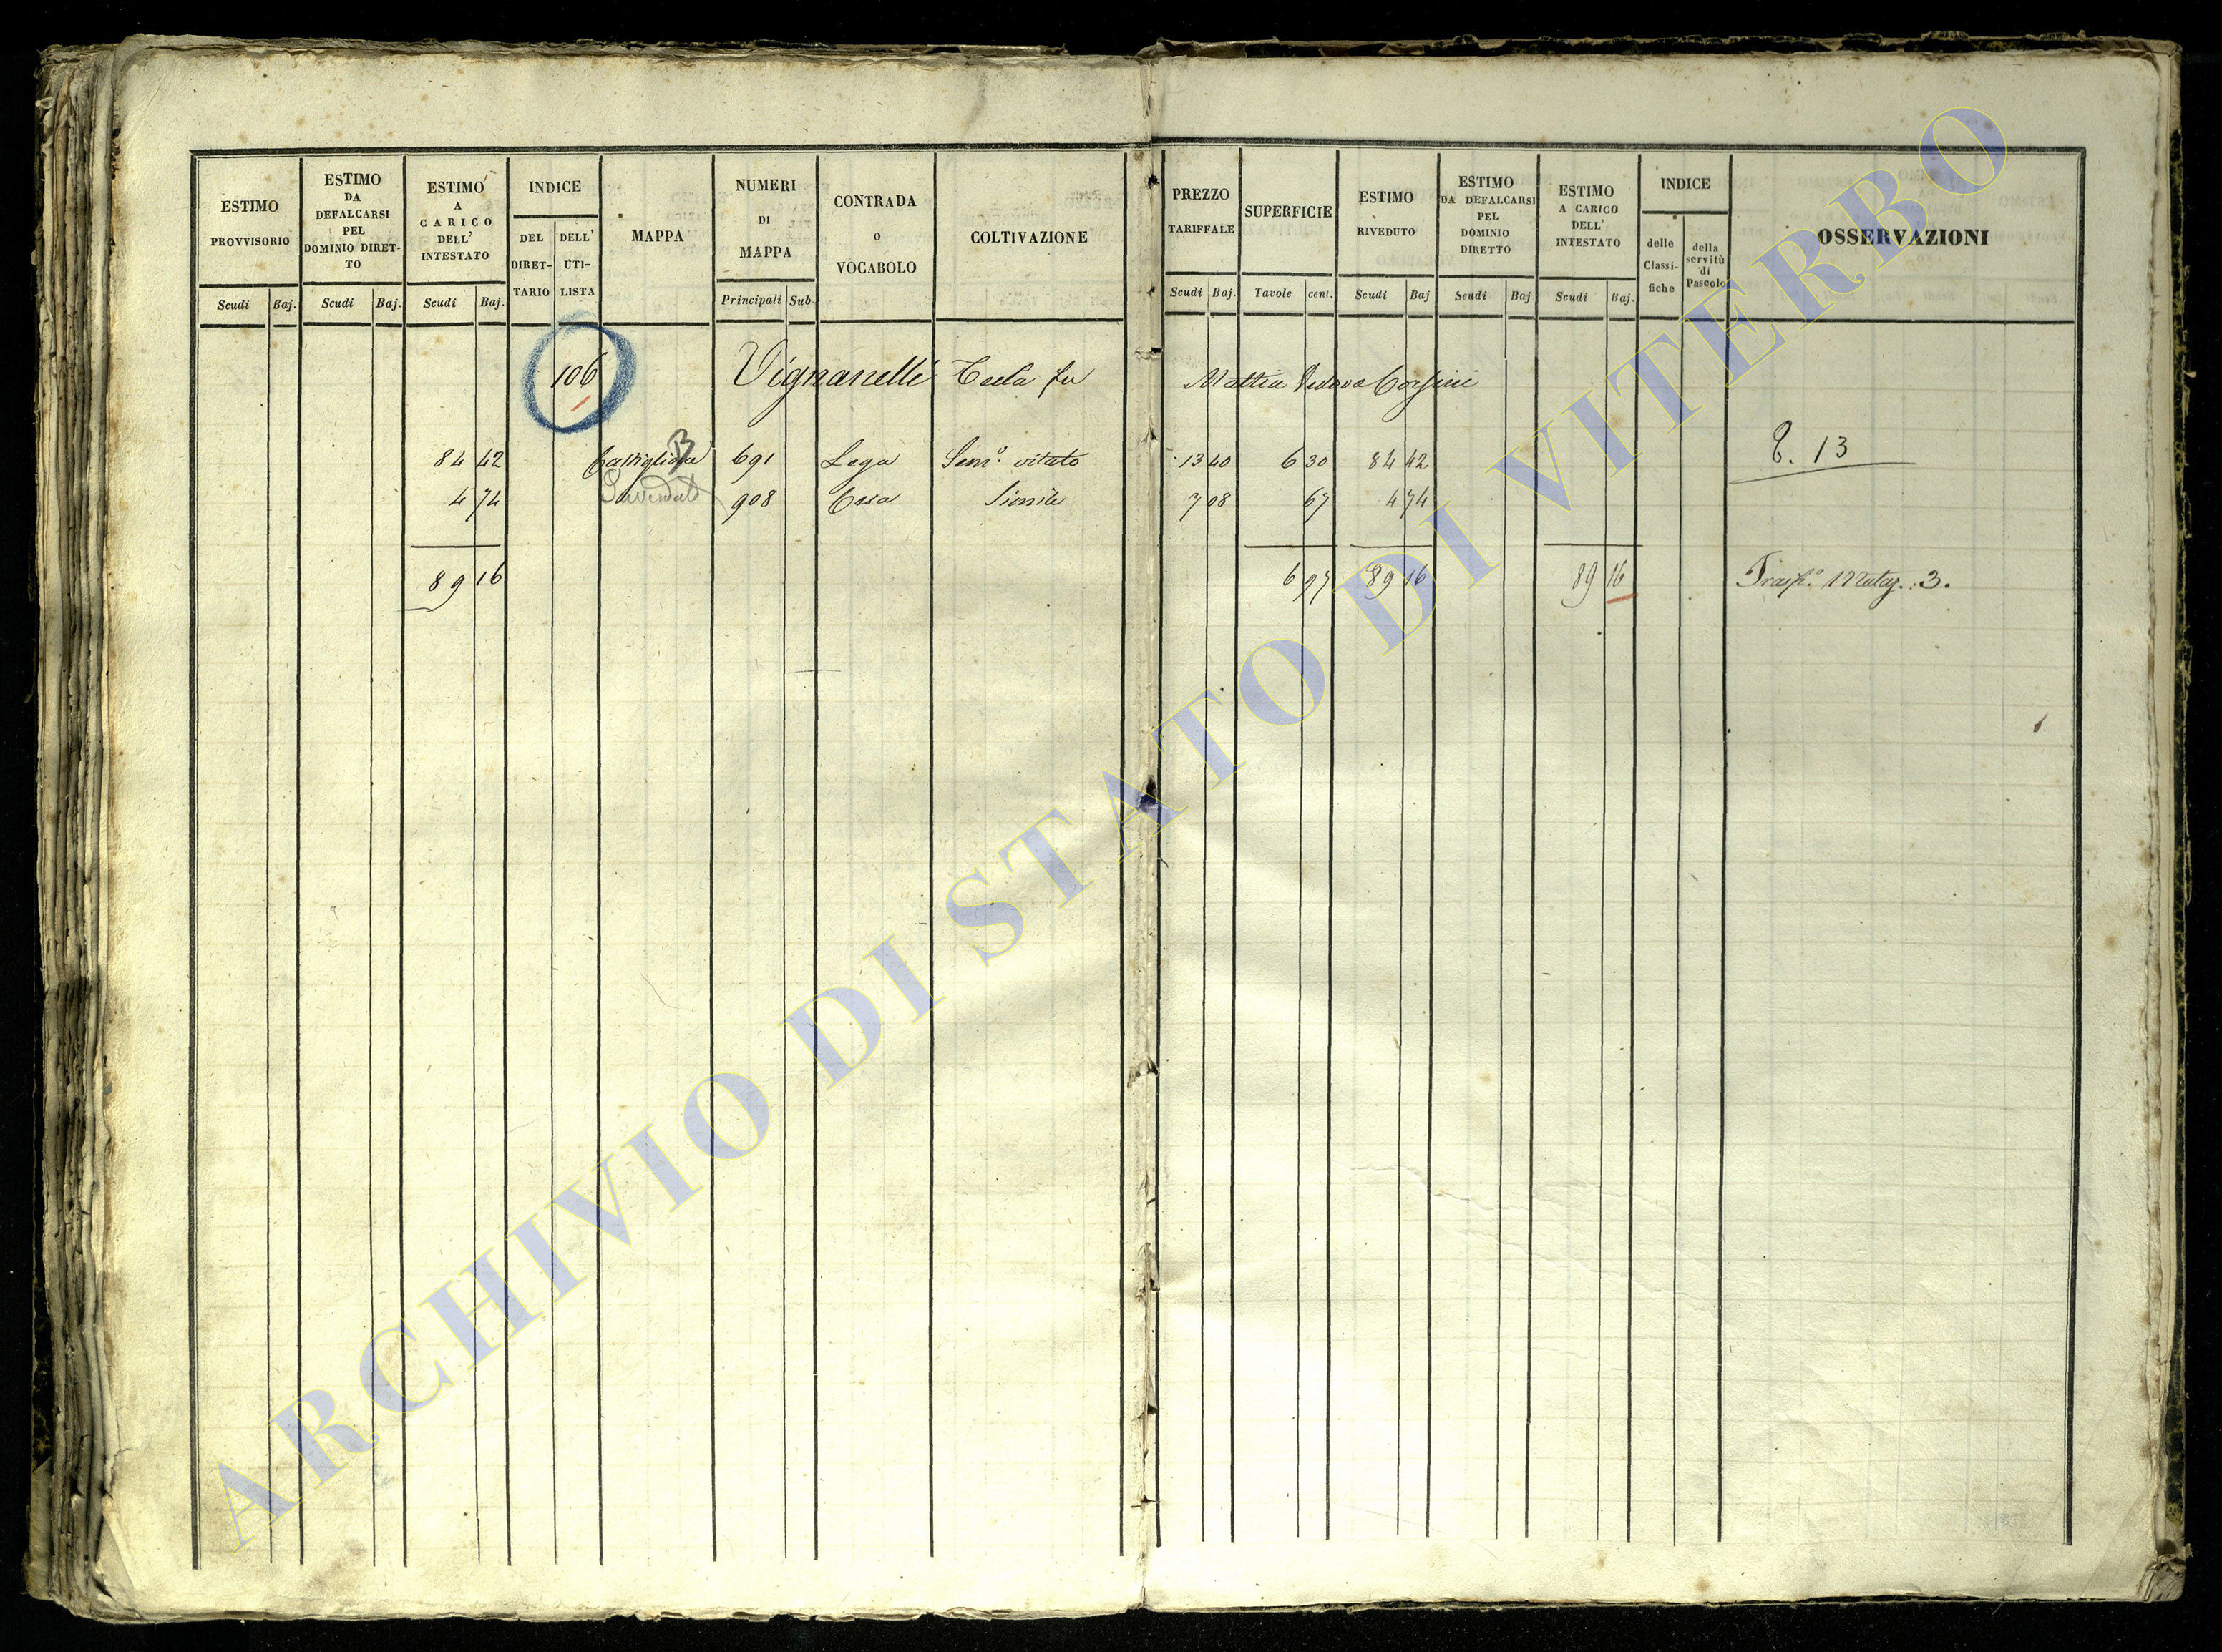 ESTIMO PROVVISORIO
Scudi Baj.
ESTIMO DA DEFALCARSI PEL DOMINIO DIRET-TO
Scudi Baj.
ESTIMO A CARICO DELL' INTESTATO
Scudi Baj.
INDICE
DEL DIRET-TARIO
DELL' UTI-LISTA
MAPPA
NUMERI DI MAPPA
Principali Sub.
CONTRADA o VOCABOLO
COLTIVAZIONE
PREZZO TARIFFALE
Scudi Baj.
SUPERFICIE
Tavole cent.
ESTIMO RIVEDUTO
Scudi Baj
ESTIMO DA DEFALCARSI PEL DOMINIO DIRETTO
Scudi Baj
ESTIMO A CARICO DELL' INTESTATO
Scudi Baj.
INDICE
delle Classi-fiche
della servitù di Pascolo
OSSERVAZIONI
106 Vignanelli Tecla fu Mattia Vedova Corsini
84 42 Castiglione 691 Lega Sem.o vitato 13 40 6 30 84 42 13
4 74 908 Simile 7 08 67 4 74
89 16 6 97 89 16 89 16 Trasp.o Mutaz. 3.
ARCHIVIO DI STATO DI VITERBO